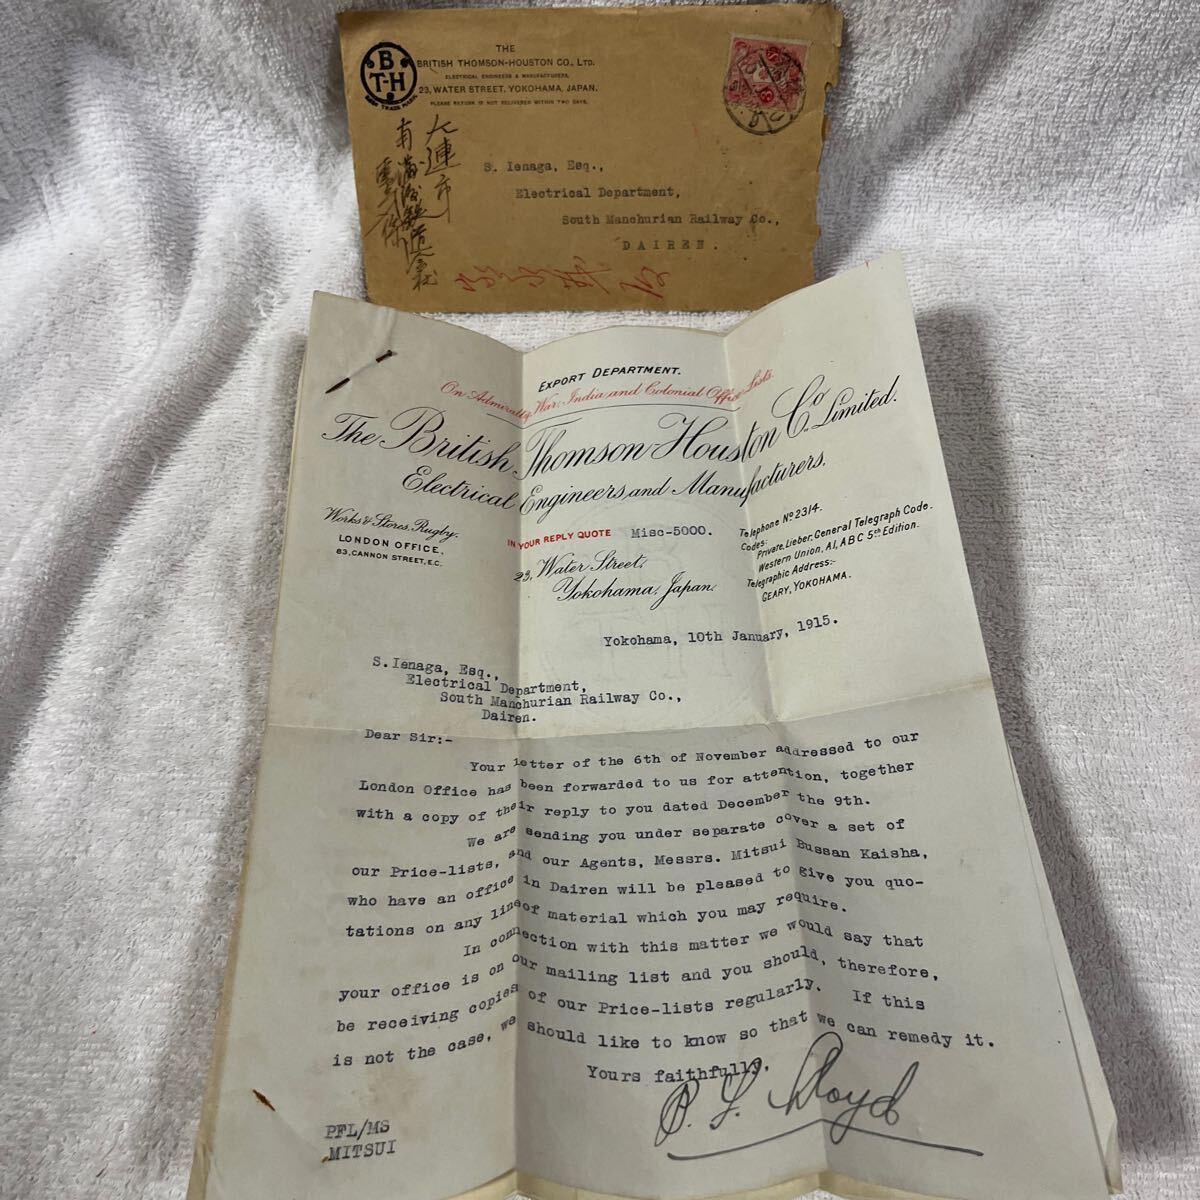 THE
BRITISH THOMSON-HOUSTON CO., LTD.
ELECTRICAL ENGINEERS & MANUFACTURERS,
23, WATER STREET, YOKOHAMA, JAPAN.
PLEASE RETURN IF NOT DELIVERED WITHIN TWO DAYS.
B
T-H
TRADE MARK
大連市
南満洲鉄道会社
S. Ienaga, Esq.,
Electrical Department,
South Manchurian Railway Co.,
DAIREN.
EXPORT DEPARTMENT.
On Admiralty, War, India and Colonial Office Lists.
The British Thomson-Houston Co. Limited.
Electrical Engineers and Manufacturers.
Works & Stores, Rugby.
LONDON OFFICE,
83, CANNON STREET, E.C.
IN YOUR REPLY QUOTE Misc-5000.
23, Water Street,
Yokohama, Japan.
Telephone No 2314.
Codes:
Private, Lieber, General Telegraph Code.
Western Union, A1, ABC 5th Edition.
Telegraphic Address:-
GEARY, YOKOHAMA.
Yokohama, 10th January, 1915.
S. Ienaga, Esq.,
Electrical Department,
South Manchurian Railway Co.,
Dairen.
Dear Sir:-
Your letter of the 6th of November addressed to our
London Office has been forwarded to us for attention, together
with a copy of their reply to you dated December the 9th.
We are sending you under separate cover a set of
our Price-lists, and our Agents, Messrs. Mitsui Bussan Kaisha,
who have an office in Dairen will be pleased to give you quo-
tations on any line of material which you may require.
In connection with this matter we would say that
your office is on our mailing list and you should, therefore,
be receiving copies of our Price-lists regularly. If this
is not the case, we should like to know so that we can remedy it.
Yours faithfully,
P. F. Lloyd
PFL/MS
MITSUI